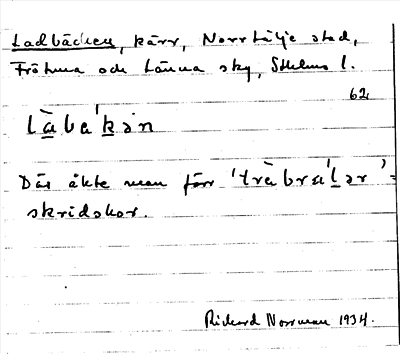 Ladbäcken, kärr, Norrtälje stad,
Frötuna och Länna sky, Sthlms l.
62
làba'kən
Där åkte man förr 'tràbra'lər' =
skridskor.
Rickard Norrman 1934.